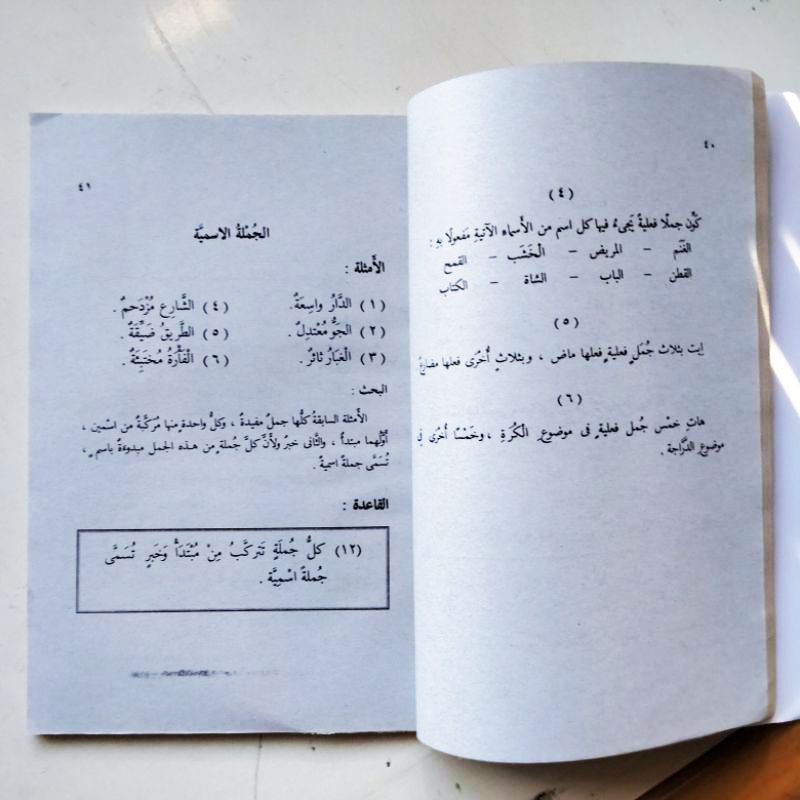 ٤٠
(٤)
كَوِّن جملًا فعليةً يَجىءُ فيها كل اسم من الأَسماءِ الآتيةِ مَفعولًا بهِ :
الغَنَم – المريض – الْخَشَب – القمح
القطن – الباب – الشاة – الكتاب
(٥)
اِيت بثلاث جُمَلٍ فعليةٍ فعلها ماض ، وبثلاثٍ أُخرَى فعلها مضارعٌ
(٦)
هات خَمْس جُمل فعليةٍ فى موضوعِ الْكُرَةِ ، وخَمْسًا أُخرَى فى
موضوعِ الدَّراجة .
٤١
الجُمْلةُ الاسميَّة
الأَمثلة :
(١) الدَّارُ واسِعَةٌ. (٤) الشَّارِع مُزْدَحمٌ .
(٢) الجَوُّ مُعْتدِلٌ . (٥) الطَّرِيقُ ضَيِّقَةٌ .
(٣) الْغبَارُ ثائرٌ . (٦) الْفَأْرَةُ مُختَبِئَةٌ .
البحث :
الأَمثلة السابقةُ كلُّها جملٌ مفيدةٌ ، وكلُّ واحدة منها مُرَكَّبةٌ من اسْمين ،
أَوَّلُهما مبتدأٌ ، والثَّانى خبرٌ ولأَنَّ كلَّ جُملةٍ من هذه الجمل مبدوءةٌ باسمٍ ،
تُسَمَّى جملةً اسميةً .
القاعدة :
(١٢) كلُّ جُملَةٍ تَتركَّبُ مِنْ مُبْتَدَأٍ وَخَبرٍ تُسَمَّى
جُملةً اسْمِيَّة .